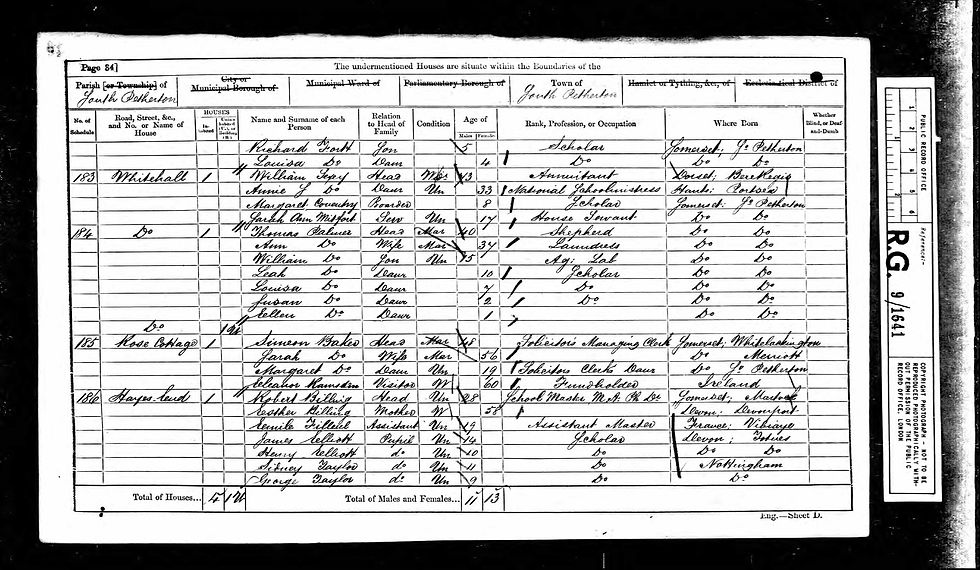 Page 34]
The undermentioned Houses are situate within the Boundaries of the
Parish [or Township] of
South Petherton
City or
Municipal Borough of
Municipal Ward of
Parliamentary Borough of
Town of
South Petherton
Hamlet or Tything, &c., of
Ecclesiastical District of
No. of Schedule
Road, Street, &c., and No. or Name of House
HOUSES
Inhabited
Uninhabited (U.), or Building (B.)
Name and Surname of each Person
Relation to Head of Family
Condition
Age of
Males
Females
Rank, Profession, or Occupation
Where Born
Whether Blind, or Deaf-and-Dumb
Richard Son 5 Scholar Somerset; So Petherton
Louisa Do Daur 4 Do Do Do
183 Whitehall 1 William Head Annuitant Dorset; Bere Regis
Annie Do Daur Un 33 National Schoolmistress Hants; Portsea
Margaret Coventry Boarder 8 Scholar Somerset; So Petherton
Sarah Ann Serv Un 17 House Servant Do Do
184 Do 1 Thomas Palmer Head Mar 40 Shepherd Do Do
Ann Do Wife Mar 37 Laundress Do Do
William Do Son Un 15 Ag: Lab Do Do
Leah Do Daur 10 Scholar Do Do
Louisa Do Daur 7 Do Do Do
Susan Do Daur 2 Do Do Do
Ellen Do Daur 1 Do Do
Do 1U
185 Rose Cottage 1 Simeon Baker Head Mar 48 Solicitors Managing Clerk Somerset; Whitelackington
Sarah Do Wife Mar 56 Do Merriott
Margaret Do Daur Un 19 Solicitors Clerks Daur Do So Petherton
Eleanor Ramsden Visitor W 60 Fundholder Ireland
186 Hayes End 1 Robert Billing Head Un 28 School Master M.A. Ph. Dr Somerset; Martock
Esther Billing Mother W 58 Devon; Devonport
Emile Assistant Un 19 Assistant Master France;
James Elliott Pupil Un 14 Scholar Devon; Totnes
Henry Elliott do Un 10 Do Do Do
Sidney Taylor do Un 11 Do Nottingham
George Taylor do Un 9 Do Do
Total of Houses... 4 1U
Total of Males and Females... 11 13
Eng.—Sheet D.
PUBLIC RECORD OFFICE
1 2 3 4 5 6
Reference:-
RG. 9/1641
COPYRIGHT PHOTOGRAPH - NOT TO BE
REPRODUCED PHOTOGRAPHICALLY WITH-
OUT PERMISSION OF THE PUBLIC
RECORD OFFICE, LONDON